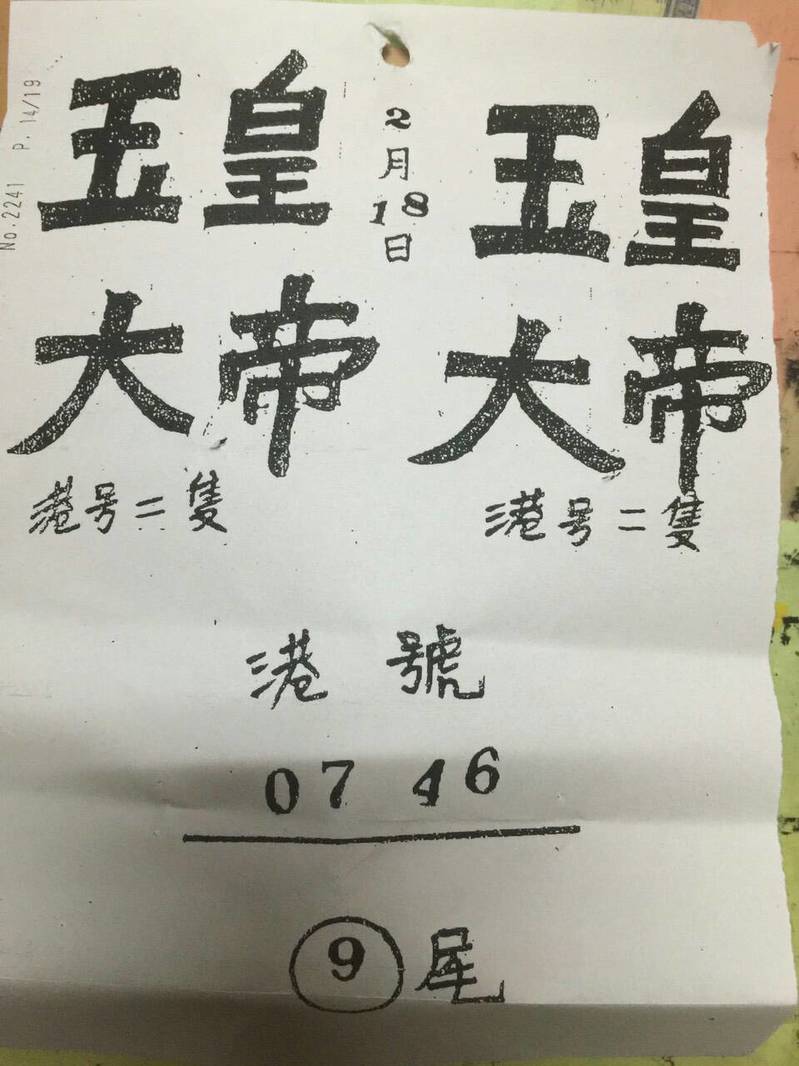 No.2241 P. 14/19
玉皇 玉皇
大帝 大帝
2月18日
港号二隻 港号二隻
港號
07 46
9尾